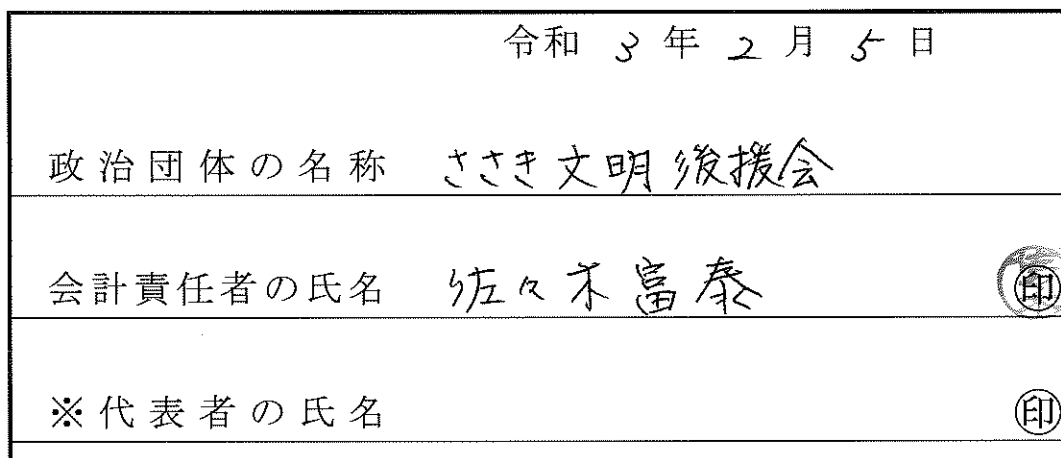 令和 3 年 2 月 5 日
政治団体の名称 ささき文明後援会
会計責任者の氏名 佐々木富泰 ㊞
※代表者の氏名 ㊞